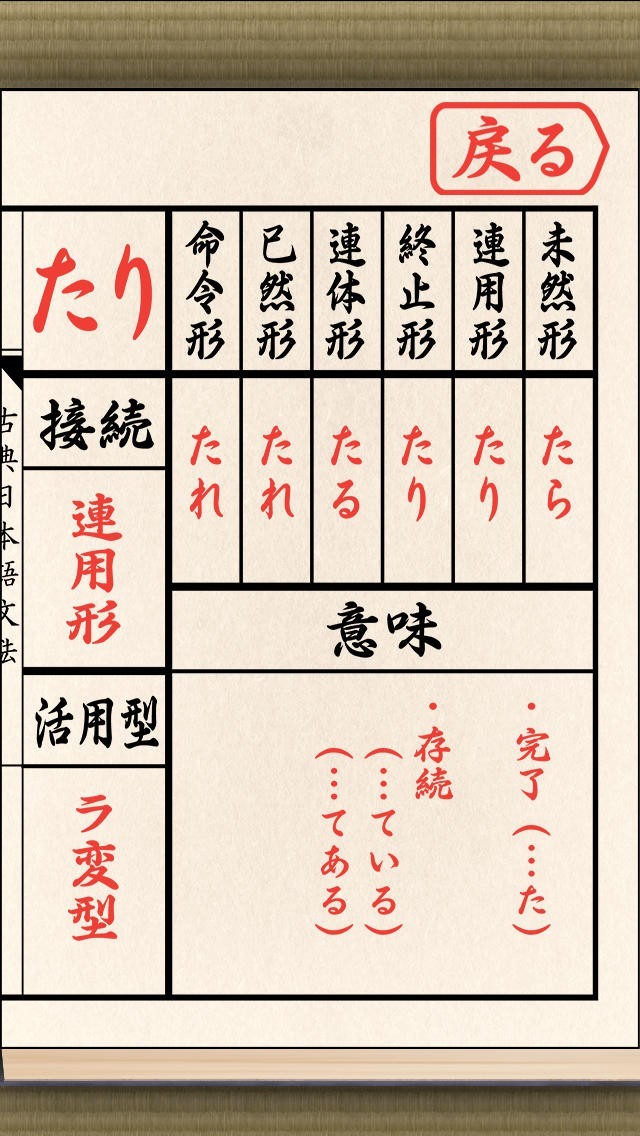 戻る
未然形
連用形
終止形
連体形
已然形
命令形
たり
たら
たり
たり
たる
たれ
たれ
接続
連用形
意味
・完了(…た)
・存続
(…ている)
(…てある)
活用型
ラ変型
古典日本語文法